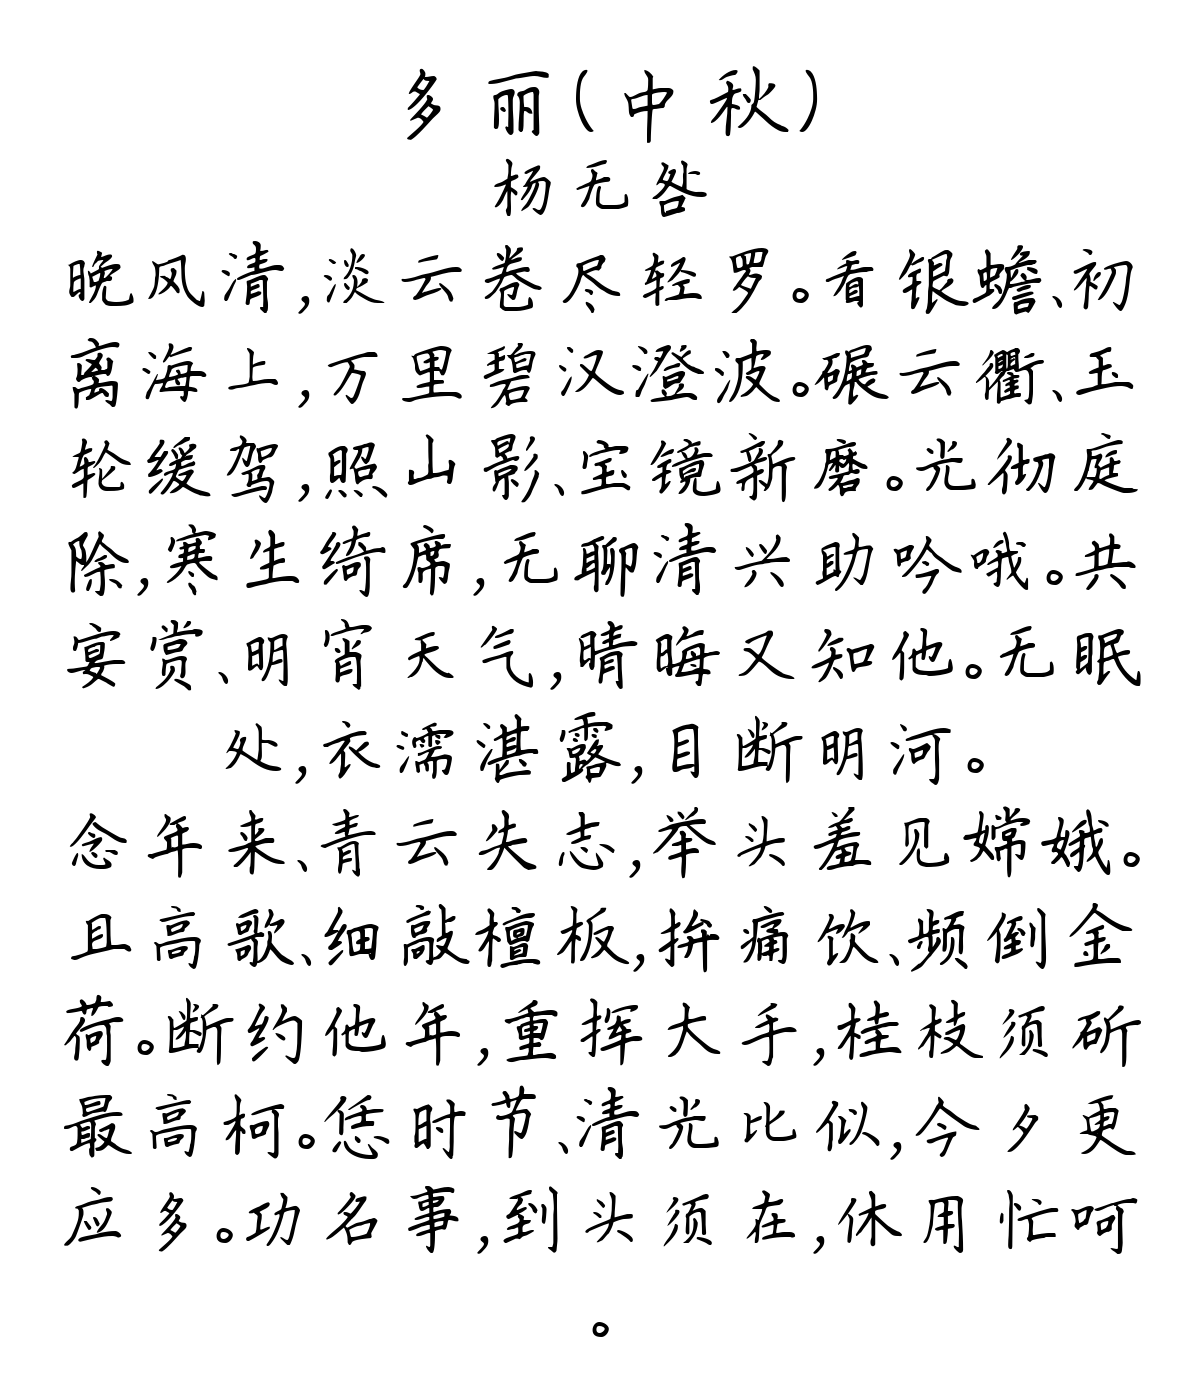 多丽(中秋)
杨无咎
晚风清,淡云卷尽轻罗。看银蟾、初
离海上,万里碧汉澄波。碾云衢、玉
轮缓驾,照山影、宝镜新磨。光彻庭
除,寒生绮席,无聊清兴助吟哦。共
宴赏、明宵天气,晴晦又知他。无眠
处,衣濡湛露,目断明河。
念年来、青云失志,举头羞见嫦娥。
且高歌、细敲檀板,拚痛饮、频倒金
荷。断约他年,重挥大手,桂枝须斫
最高柯。恁时节、清光比似,今夕更
应多。功名事,到头须在,休用忙呵
。